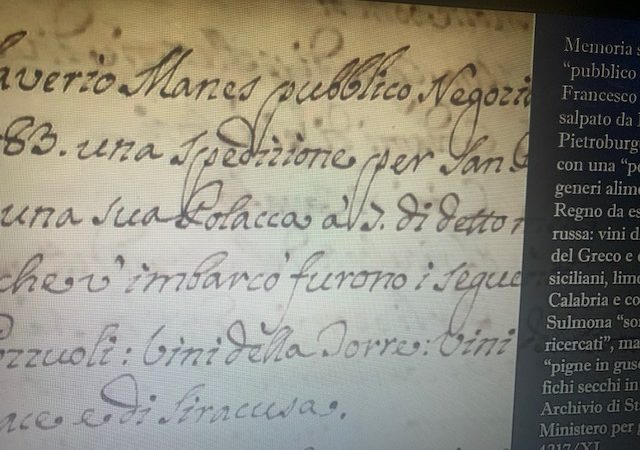 averio Manes pubblico Negozi
83. una spedizione per San
una sua Polacca à 7. di detto
che v'imbarcò furono i segue
ozzuoli: Vini della Torre: Vini
ace e di Siracusa.
Memoria s
"pubblico
Francesco
salpato da
Pietroburg
con una "p
generi alime
Regno da es
russa: vini d
del Greco e
siciliani, lim
Calabria e co
Sulmona "so
ricercati", ma
"pigne in gus
fichi secchi in
Archivio di St
Ministero per
4217/XI